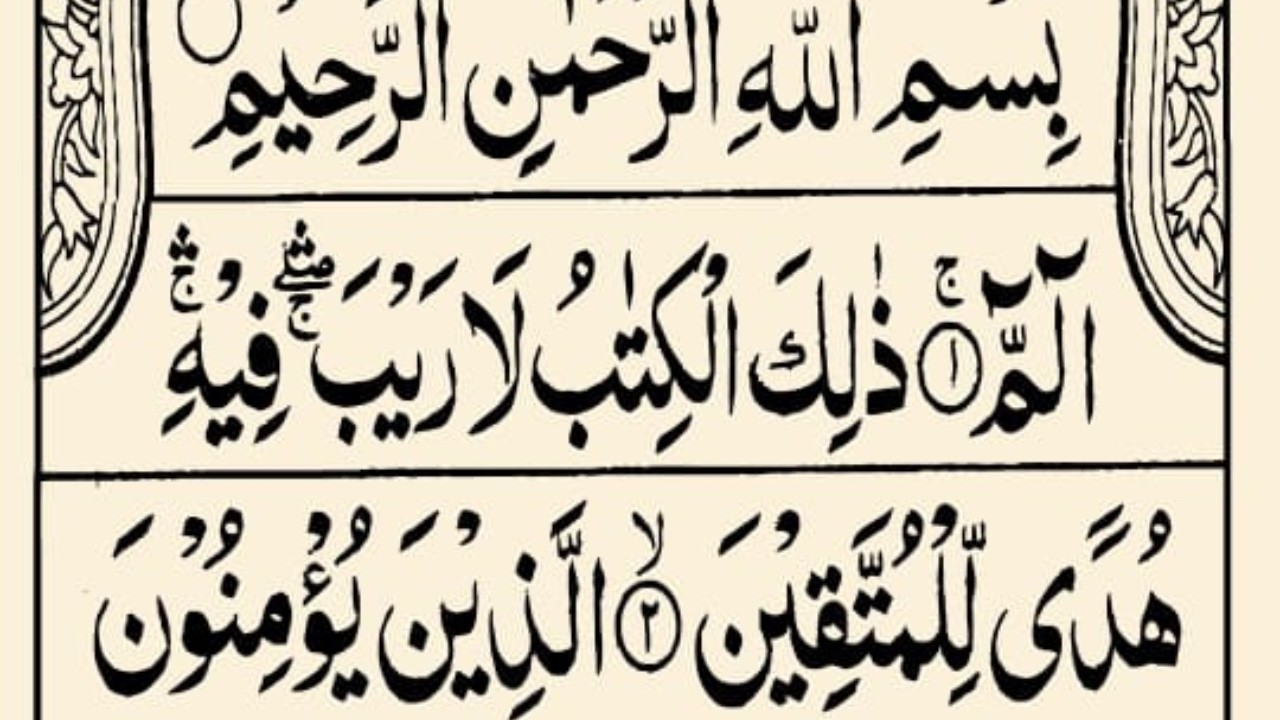 بِسْمِ اللّٰهِ الرَّحْمٰنِ الرَّحِيْمِ
الٓمّٓ ۚ ﴿۱﴾ ذٰلِكَ الْكِتٰبُ لَا رَيْبَ ۛۖۚ فِيْهِ ۛۚ
هُدًى لِّلْمُتَّقِيْنَ ۙ ﴿۲﴾ الَّذِيْنَ يُؤْمِنُوْنَ